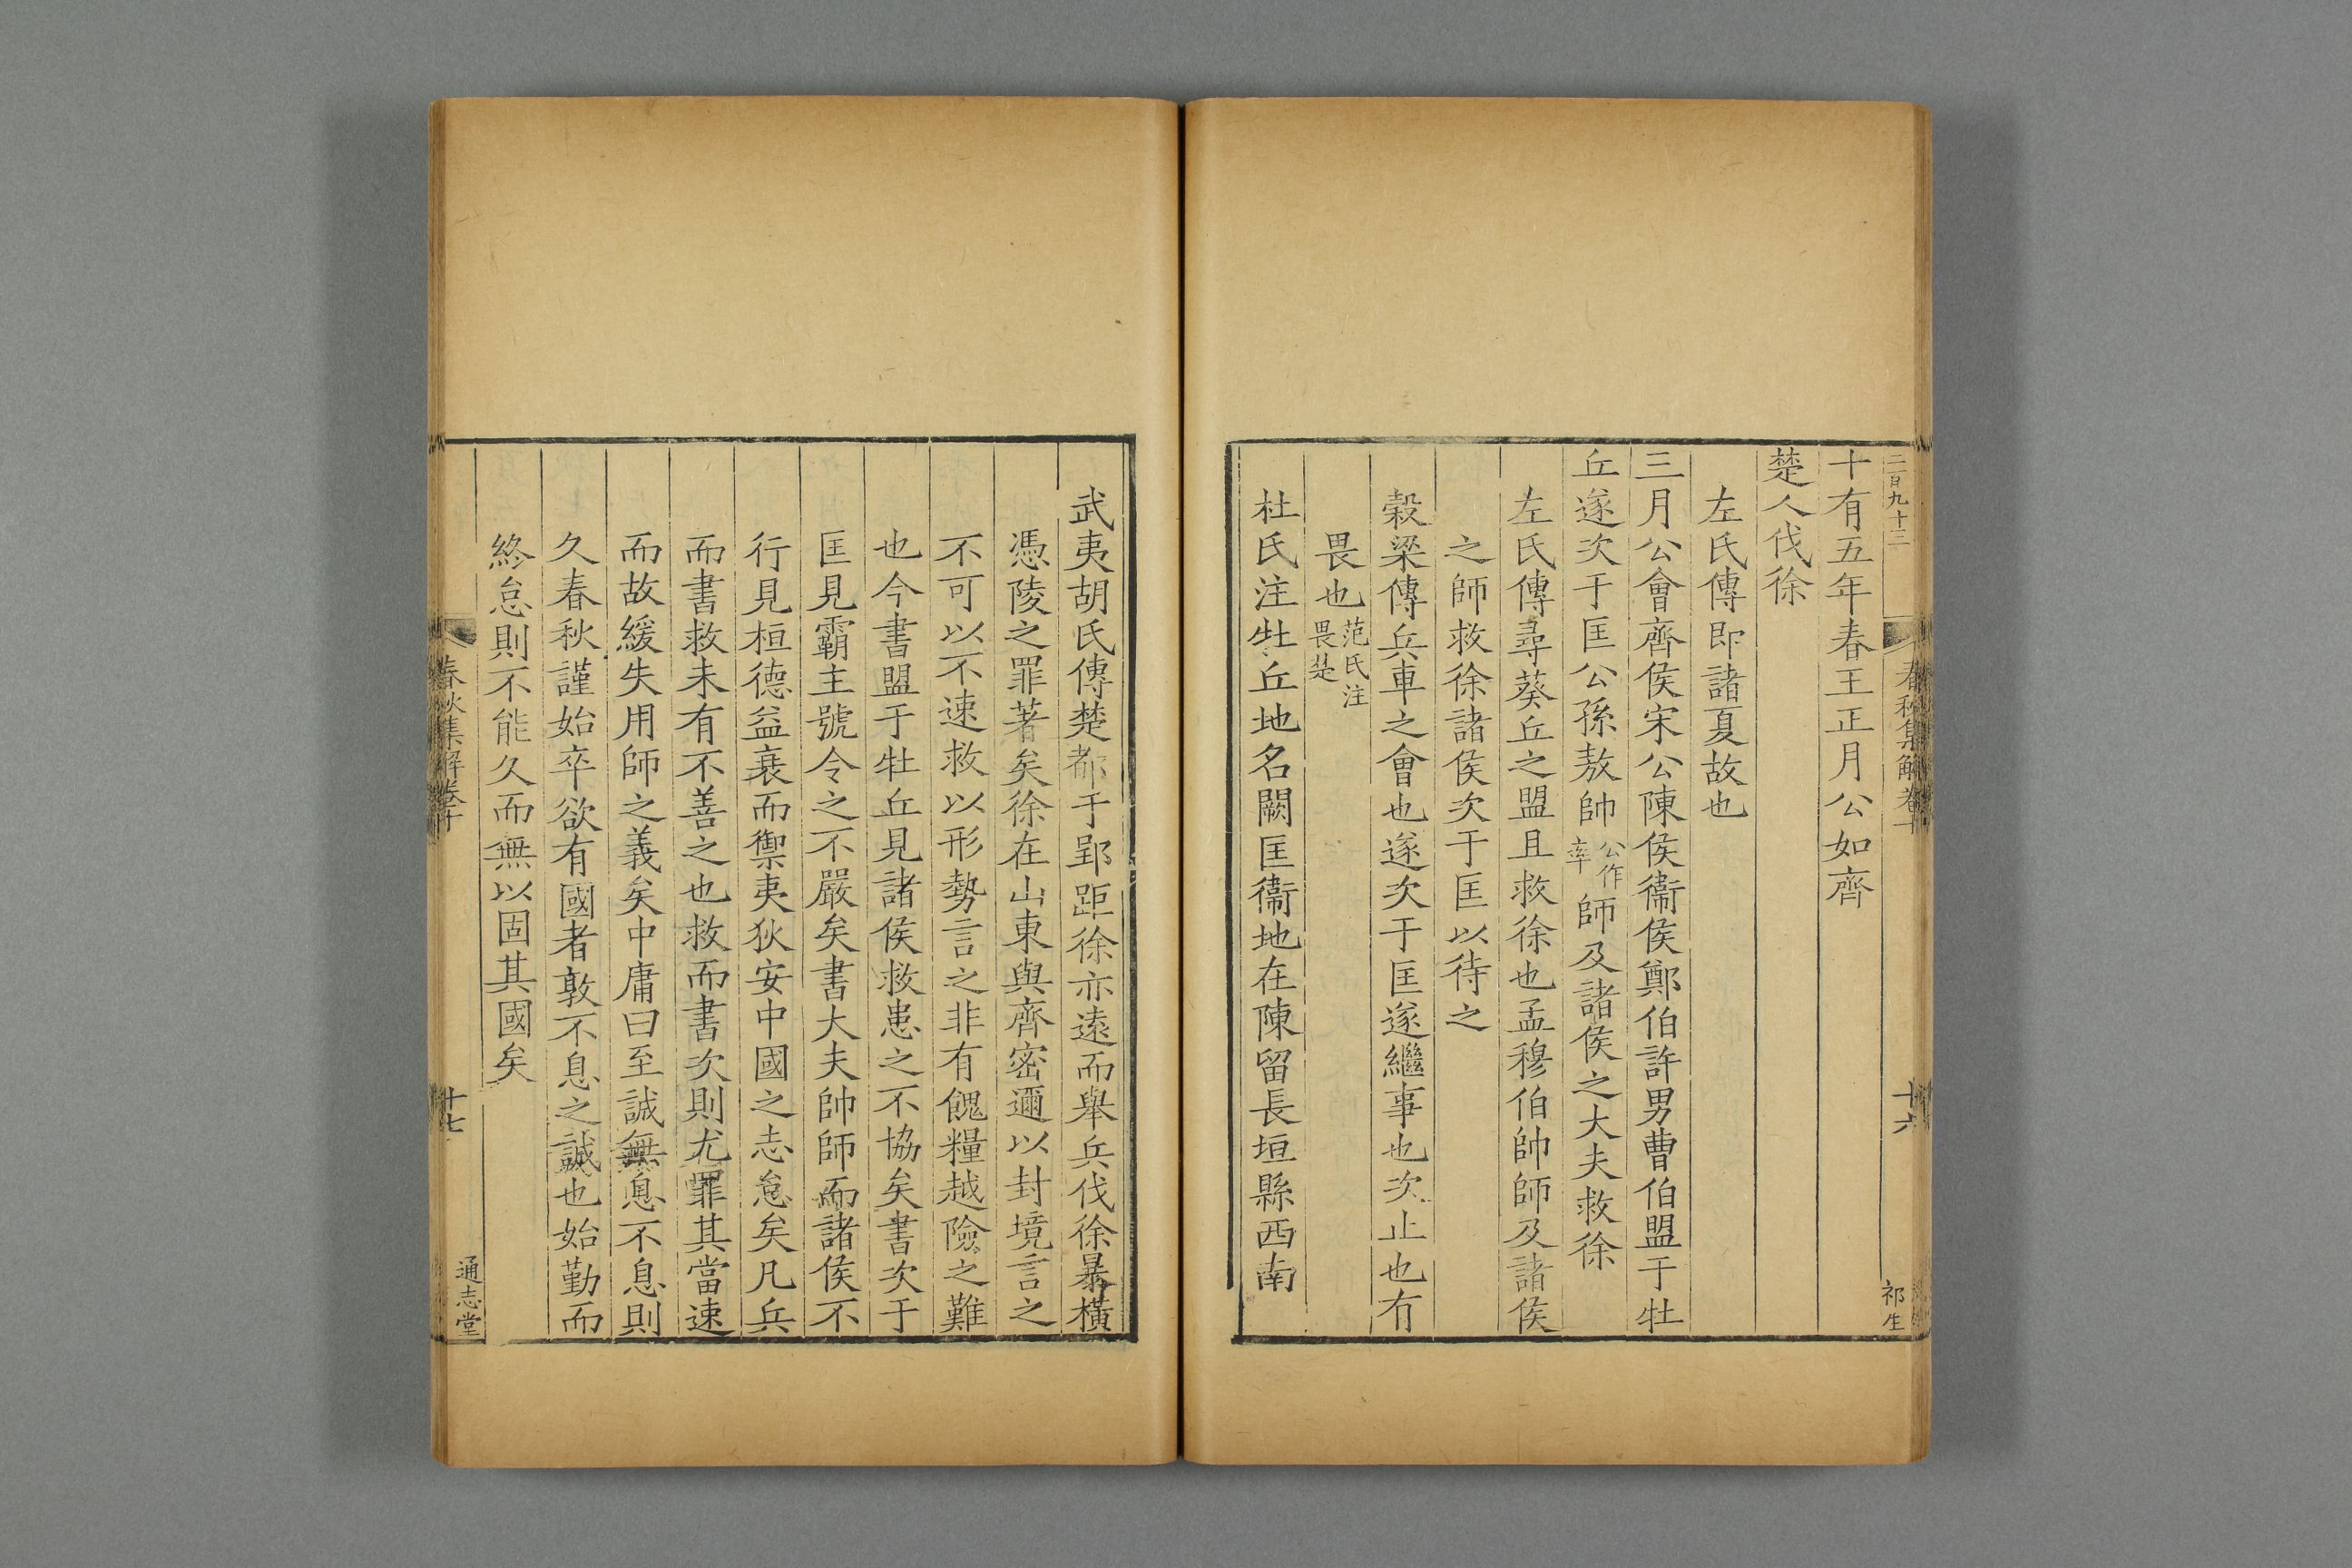 二百九十三
春秋集解卷十
十六
祁生
十有五年春王正月公如齊
楚人伐徐
左氏傳即諸夏故也
三月公會齊侯宋公陳侯衞侯鄭伯許男曹伯盟于牡
丘遂次于匡公孫敖帥公作率師及諸侯之大夫救徐
左氏傳尋葵丘之盟且救徐也孟穆伯帥師及諸侯
之師救徐諸侯次于匡以待之
榖梁傳兵車之會也遂次于匡遂繼事也次止也有
畏也范氏注畏楚
杜氏注牡丘地名闕匡衞地在陳留長垣縣西南
武夷胡氏傳楚都于郢距徐亦遠而舉兵伐徐暴橫
憑陵之罪著矣徐在山東與齊密邇以封境言之
不可以不速救以形勢言之非有餽糧越險之難
也今書盟于牡丘見諸侯救患之不協矣書次于
匡見霸主號令之不嚴矣書大夫帥師而諸侯不
行見桓德益衰而禦夷狄安中國之志怠矣凡兵
而書救未有不善之也救而書次則尤罪其當速
而故緩失用師之義矣中庸曰至誠無息不息則
久春秋謹始卒欲有國者敦不息之誠也始勤而
終怠則不能久而無以固其國矣
春秋集解卷十
十七
通志堂